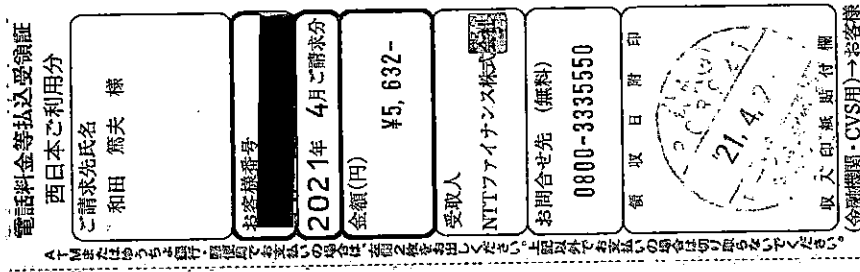 電話料金等払込受領証
西日本ご利用分
ご請求先氏名
和田 篤夫 様
お客様番号
2021年 4月ご請求分
金額(円)
¥5,632-
受取人
NTTファイナンス株式会社
お問合せ先 (無料)
0800-3335550
領収日附印
'21.4.2
収入印紙貼付欄
(金融機関・CVS用)→お客様
ATMまたはゆうちょ銀行・郵便局でお支払いの場合は、左側2枚をお出しください。上記以外でお支払いの場合は切り取らないでください。